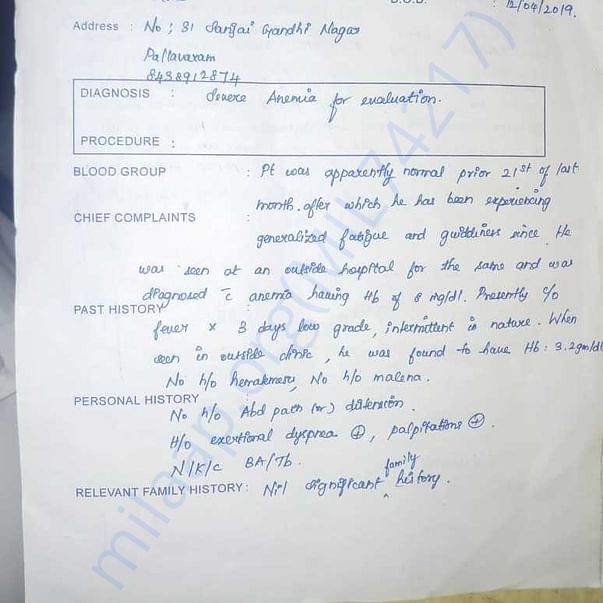 12/04/2019.
Address : No ; 31 Sanjai Gandhi Nagar
Pallavaram
8438912874
DIAGNOSIS : Severe Anemia for evaluation.
PROCEDURE :
BLOOD GROUP : Pt was apparently normal prior 21st of last
month. after which he has been experiencing
CHIEF COMPLAINTS :
generalized fatigue and guiddiness since. He
was seen at an outside hospital for the same and was
diagnosed c̄ anemia having Hb of 8 mg/dl. Presently c/o
PAST HISTORY
fever x 3 days low grade, intermittent in nature. When
seen in outside clinic, he was found to have Hb : 3.2gm/dl
No h/o hematemesis, No h/o malena.
PERSONAL HISTORY :
No h/o Abd pain (or) distension.
H/o exertional dyspnea ⊕, palpitations ⊕.
N/K/c BA/Tb.
RELEVANT FAMILY HISTORY : Nil significant family history.
milaap.org(MIL74217)